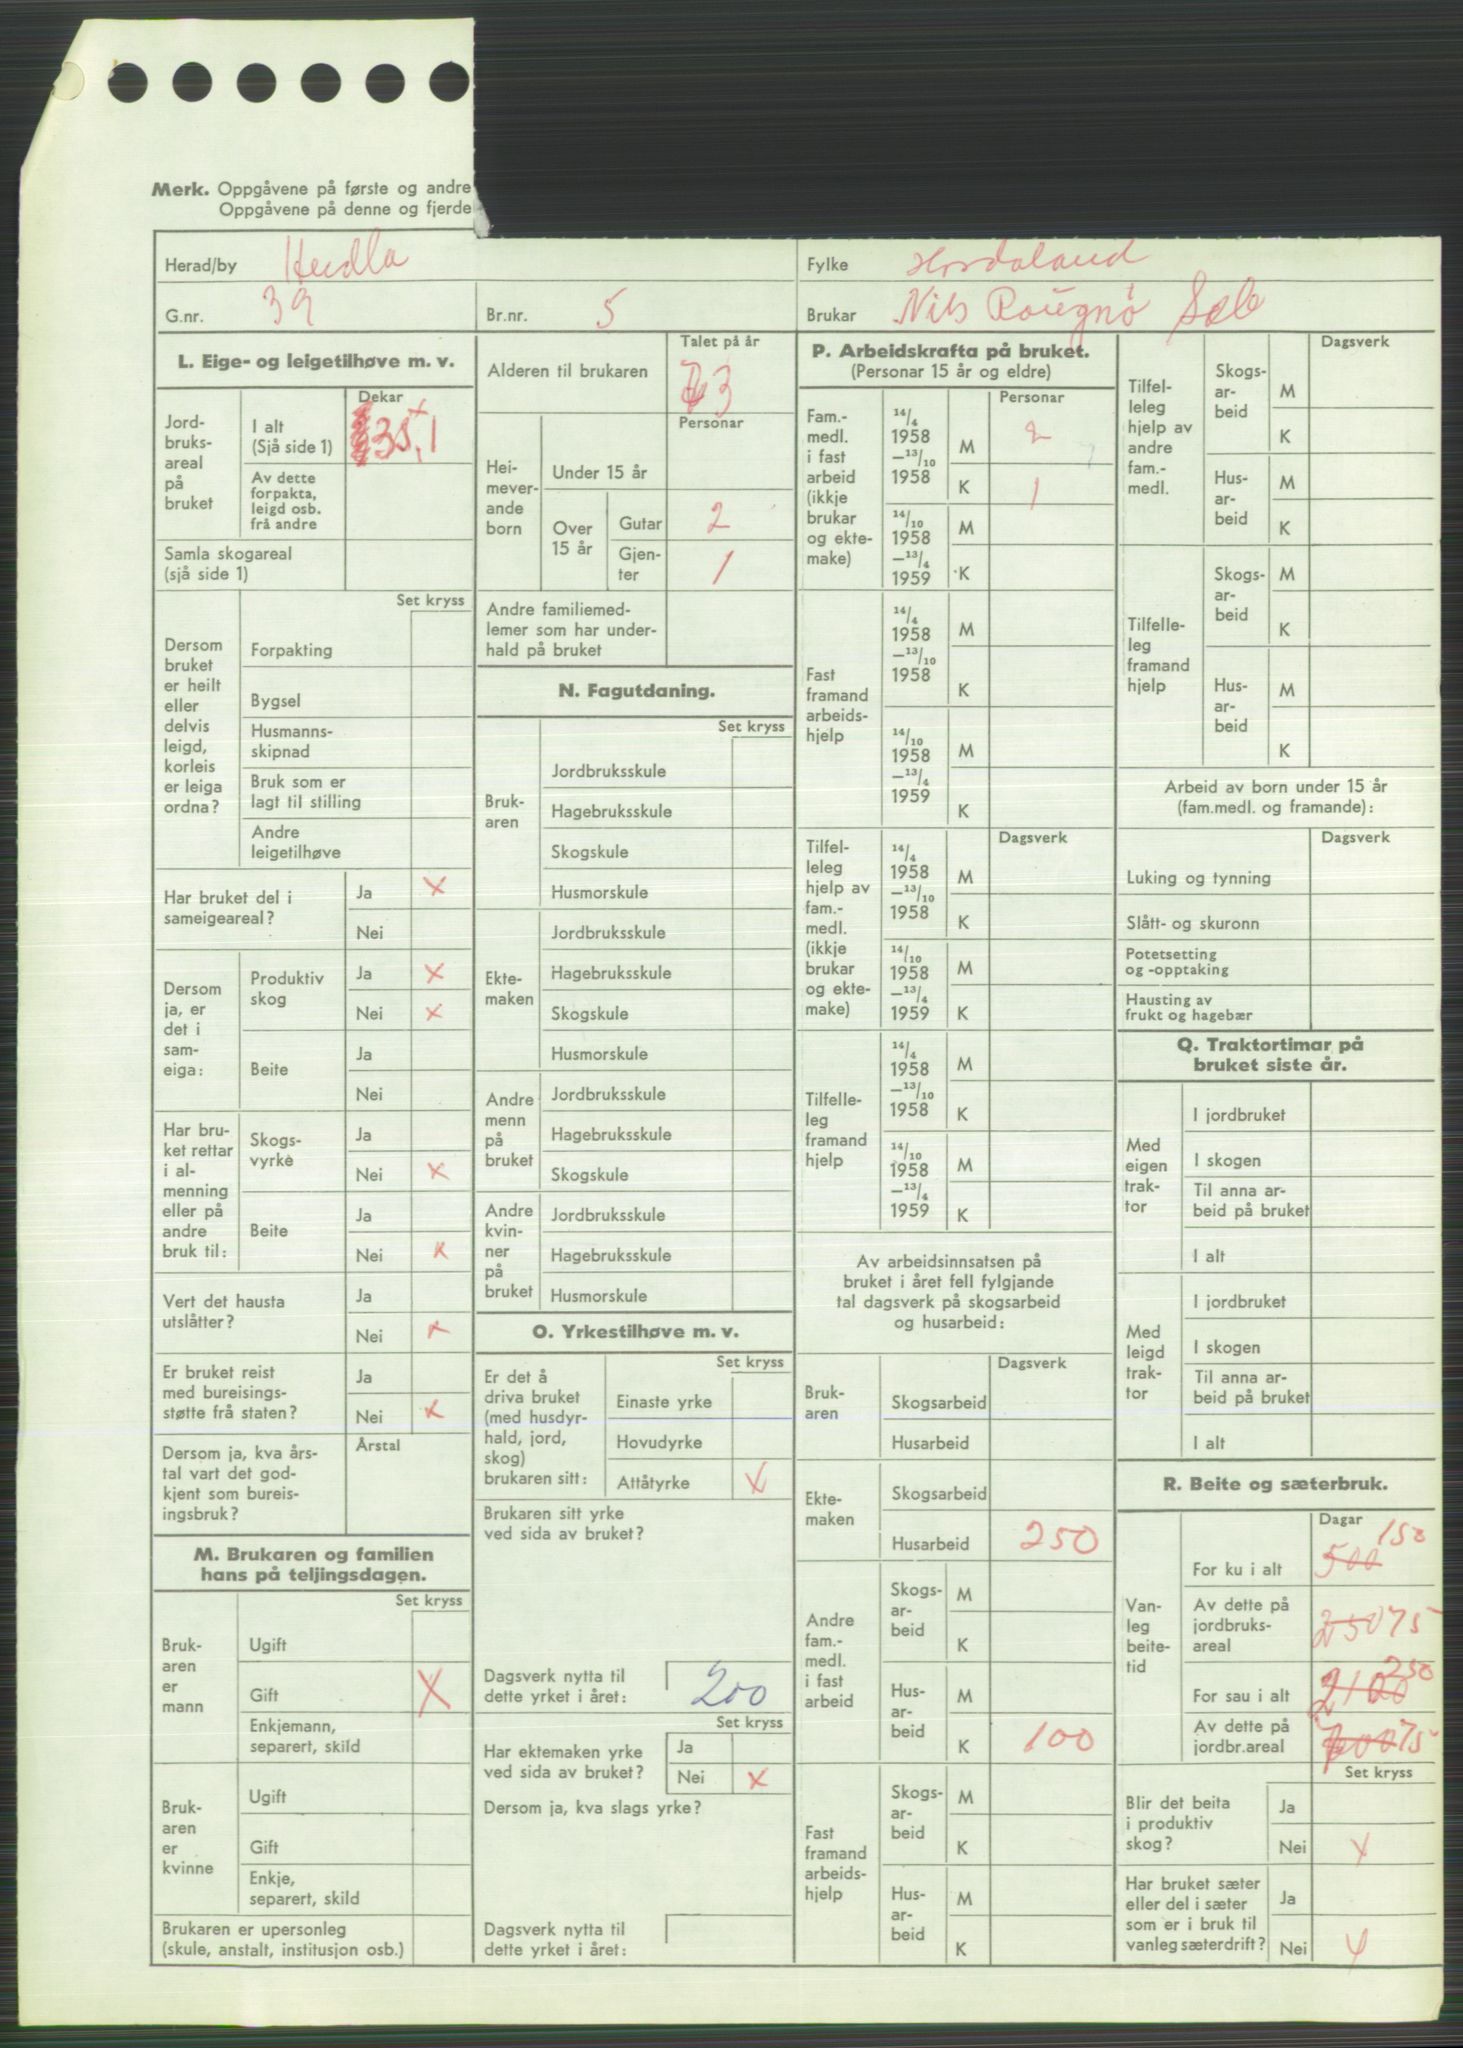 Merk. Oppgåvene på første og andre
Oppgåvene på denne og fjerde
Herad/by Herdla
Fylke Hordaland
G.nr. 39
Br.nr. 5
Brukar Nils Rougnö Sæle
L. Eige- og leigetilhøve m. v.
Jord-
bruks-
areal
på
bruket
Dekar
I alt
(Sjå side 1)
35,1
Av dette
forpakta,
leigd osb.
frå andre
Samla skogareal
(sjå side 1)
Set kryss
Dersom
bruket
er heilt
eller
delvis
leigd,
korleis
er leiga
ordna?
Forpakting
Bygsel
Husmanns-
skipnad
Bruk som er
lagt til stilling
Andre
leigetilhøve
Har bruket del i
sameigeareal?
Ja x
Nei
Dersom
ja, er
det i
sam-
eiga:
Produktiv
skog
Ja x
Nei x
Beite
Ja
Nei
Har bru-
ket rettar
i al-
menning
eller på
andre
bruk til:
Skogs-
vyrke
Ja
Nei x
Beite
Ja
Nei x
Vert det hausta
utslåtter?
Ja
Nei x
Er bruket reist
med bureisings-
støtte frå staten?
Ja
Nei x
Dersom ja, kva års-
tal vart det god-
kjent som bureis-
ingsbruk?
Årstal
M. Brukaren og familien
hans på teljingsdagen.
Set kryss
Bruk-
aren
er
mann
Ugift
Gift X
Enkjemann,
separert, skild
Bruk-
aren
er
kvinne
Ugift
Gift
Enkje,
separert, skild
Brukaren er upersonleg
(skule, anstalt, institusjon osb.)
Talet på år
Alderen til brukaren 73
Personar
Hei-
mever-
ande
born
Under 15 år
Over
15 år
Gutar 2
Gjen-
ter 1
Andre familiemed-
lemer som har under-
hald på bruket
N. Fagutdaning.
Set kryss
Bruk-
aren
Jordbruksskule
Hagebruksskule
Skogskule
Husmorskule
Ekte-
maken
Jordbruksskule
Hagebruksskule
Skogskule
Husmorskule
Andre
menn
på
bruket
Jordbruksskule
Hagebruksskule
Skogskule
Andre
kvin-
ner
på
bruket
Jordbruksskule
Hagebruksskule
Husmorskule
O. Yrkestilhøve m. v.
Set kryss
Er det å
driva bruket
(med husdyr-
hald, jord,
skog)
brukaren sitt:
Einaste yrke
Hovudyrke
Attåtyrke x
Brukaren sitt yrke
ved sida av bruket?
Dagsverk nytta til
dette yrket i året: 200
Set kryss
Har ektemaken yrke
ved sida av bruket?
Ja
Nei x
Dersom ja, kva slags yrke?
Dagsverk nytta til
dette yrket i året:
P. Arbeidskrafta på bruket.
(Personar 15 år og eldre)
Personar
Fam.-
medl.
i fast
arbeid
(ikkje
brukar
og ekte-
make)
14/4
1958
—13/10
1958
M 2
K 1
14/10
1958
—13/4
1959
M
K
Fast
framand
arbeids-
hjelp
14/4
1958
—13/10
1958
M
K
14/10
1958
—13/4
1959
M
K
Dagsverk
Tilfel-
leleg
hjelp av
fam.-
medl.
(ikkje
brukar
og ekte-
make)
14/4
1958
—13/10
1958
M
K
14/10
1958
—13/4
1959
M
K
Tilfelle-
leg
framand
hjelp
14/4
1958
—13/10
1958
M
K
14/10
1958
—13/4
1959
M
K
Av arbeidsinnsatsen på
bruket i året fell fylgjande
tal dagsverk på skogsarbeid
og husarbeid:
Dagsverk
Bruk-
aren
Skogsarbeid
Husarbeid
Ekte-
maken
Skogsarbeid
Husarbeid 250
Andre
fam.-
medl.
i fast
arbeid
Skogs-
ar-
beid
M
K
Hus-
ar-
beid
M
K 100
Fast
framand
arbeids-
hjelp
Skogs-
ar-
beid
M
K
Hus-
ar-
beid
M
K
Dagsverk
Tilfel-
leleg
hjelp av
andre
fam.-
medl.
Skogs-
ar-
beid
M
K
Hus-
ar-
beid
M
K
Tilfelle-
leg
framand
hjelp
Skogs-
ar-
beid
M
K
Hus-
ar-
beid
M
K
Arbeid av born under 15 år
(fam.medl. og framande):
Dagsverk
Luking og tynning
Slått- og skuronn
Potetsetting
og -opptaking
Hausting av
frukt og hagebær
Q. Traktortimar på
bruket siste år.
Med
eigen
trak-
tor
I jordbruket
I skogen
Til anna ar-
beid på bruket
I alt
Med
leigd
trak-
tor
I jordbruket
I skogen
Til anna ar-
beid på bruket
I alt
R. Beite og sæterbruk.
Dagar
Van-
leg
beite-
tid
For ku i alt 500 150
Av dette på
jordbruks-
areal
250 75
For sau i alt 2100 250
Av dette på
jordbr.areal
700 75
Set kryss
Blir det beita
i produktiv
skog?
Ja
Nei x
Har bruket sæter
eller del i sæter
som er i bruk til
vanleg sæterdrift?
Ja
Nei x